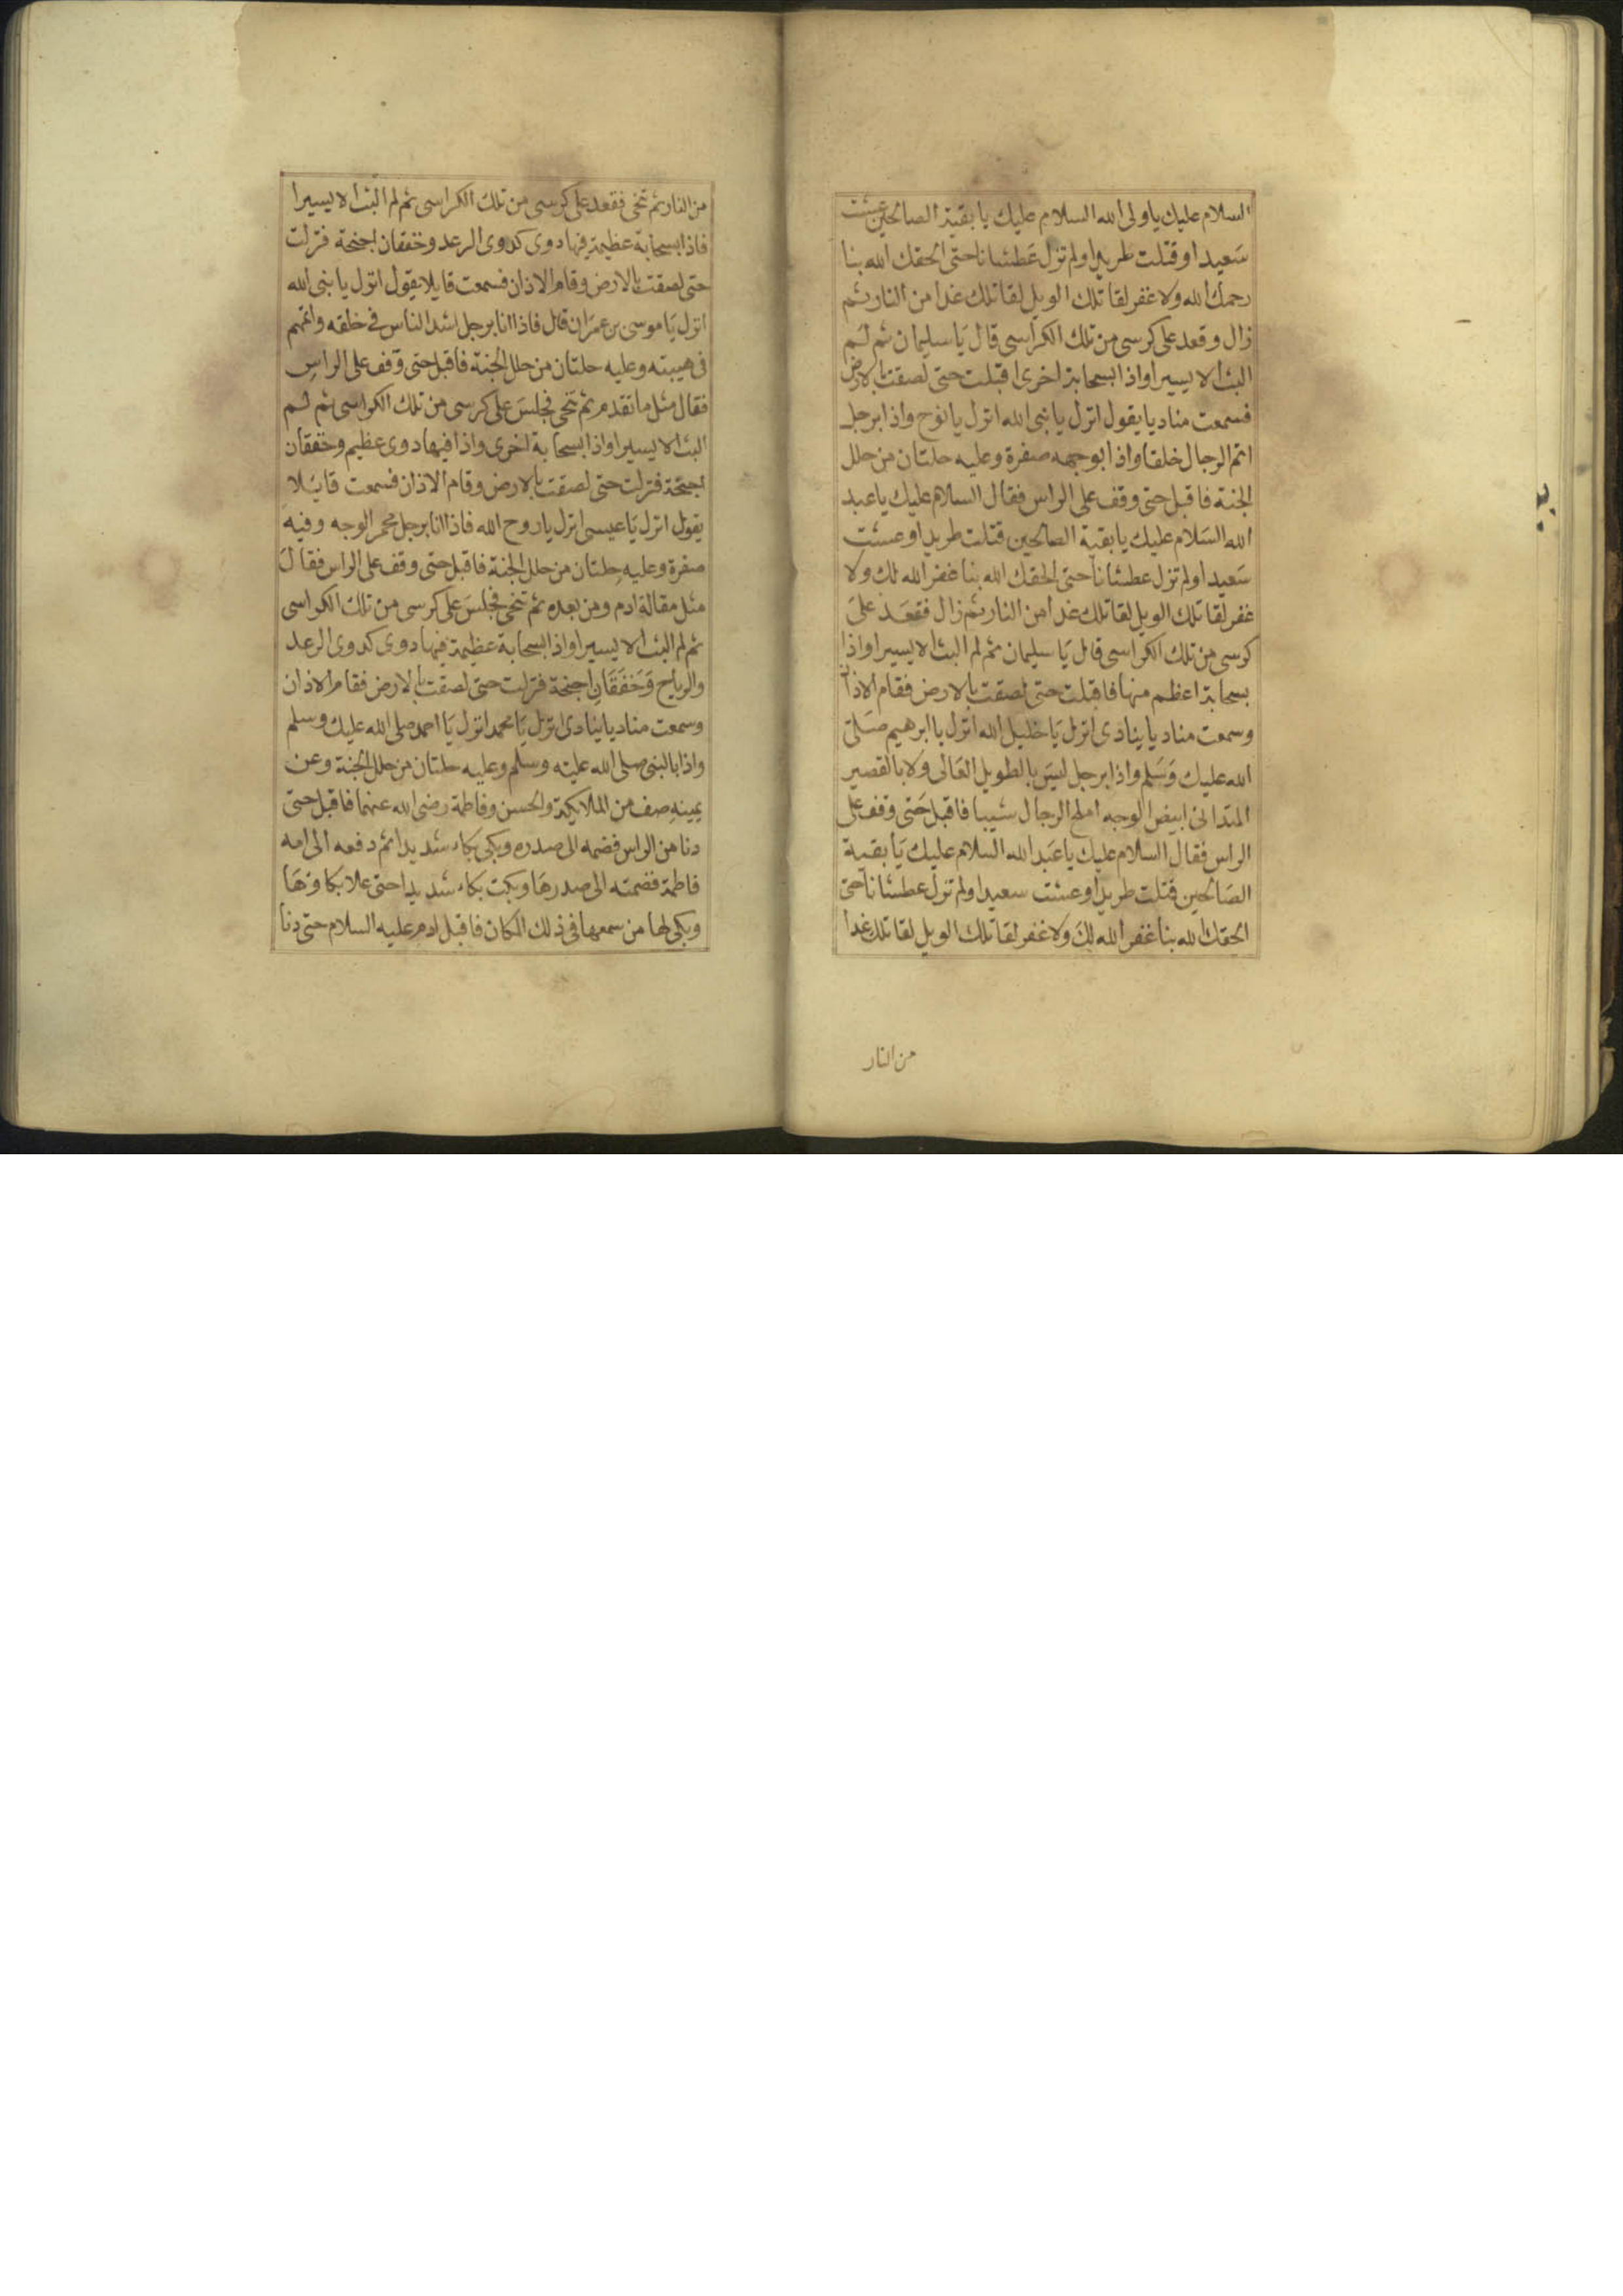 السلام عليك ياولى الله السلام عليك يا بقية الصالحين عشت
سَعيدا وقتلت طريدا ولم تزل عَطشانا حتى الحقك الله بنا
رحمك الله ولا غفر لقاتلك الويل لقاتلك غدا من النار ثم
زال وقعد على كرسى من تلك الكراسى قال يَا سليمان ثم لم
البث الا يسيرا واذا بسحابة اخرى اقبلت حتى لصقت بالارض
فسمعت مناديا يقول انزل يا نبى الله انزل يا نوح واذا برجل
اتم الرجال خلقا واذا بوجهه صفرة وعليه حلتان من حلل
الجنة فاقبل حتى وقف على الراس فقال السلام عليك يا عبد
الله السَلام عليك يا بقية الصالحين قتلت طريدا وعشت
سَعيدا ولم تزل عطشانا حتى الحقك الله بنا غفر الله لك ولا
غفر لقاتلك الويل لقاتلك غدا من النار ثم زال فقعَد علىَ
كرسى من تلك الكراسى قال يَا سليمان ثم لم البث الا يسيرا واذا
بسحابة اعظم منها فاقبلت حتى لصقت بالارض فقام الاذان
وسمعت مناديا ينادى انزل يَا خليل الله انزل يا ابرهيم صَلى
الله عليك وَسَلم واذا برجل ليسَ بالطويل العَالى ولا بالقصير
المتدانى ابيض الوجه املح الرجال شيبا فاقبل حَتى وقف على
الراس فقال السلام عليك يا عَبد الله السلام عليك يَا بقية
الصَالحين قتلت طريدا وعشت سعيدا ولم تزل عطشانا حتى
الحقك الله بنا غفر الله لكَ ولا غفر لقاتلك الويل لقاتلك غدا
من النار
من النار ثم تنحى فقعد على كرسى من تلك الكراسى ثم لم البث الا يسيرا
فاذا بسحابة عظيمة فيها دوى كدوى الرعد وخفقان اجنحة فنزلت
حتى لصقت بالارض وقام الاذان فسمعت قايلا يقول انزل يا نبى الله
انزل يَا موسى بن عمرَان قال فاذا انا برجل اشد الناس فى خلقه واتمهم
فى هيبته وعليه حلتان من حلل الجنة فاقبل حتى وقف على الراس
فقال مثل ما تقدم ثم تنحى فجلسَ على كرسى من تلك الكراسى ثم لم
البث الا يسيرا واذا بسحابة اخرى واذا فيها دوى عظيم وخفقان
اجنحة فنزلت حتى لصقت بالارض وقام الاذان فسمعت قايلا
يقول انزل يَا عيسى انزل يا روح الله فاذا انا برجل محمر الوجه وفيه
صفرة وعليه حلتان من حلل الجنة فاقبل حتى وقف على الراس فقالَ
مثل مقالة ادم ومن بعده ثم تنحى فجلسَ على كرسى من تلك الكراسى
ثم لم البث الا يسيرا واذا بسحابة عظيمة فيها دوى كدوى الرعد
والرياح وَخَفَقَانِ اجنحة فنزلت حتى لصقت بالارض فقام الاذان
وسمعت مناديا ينادى انزل يَا محمد انزل يَا احمد صلى الله عليك وسلم
واذا بالنبى صلى الله عليه وسلم وعليه حلتان من حلل الجنة وعن
يمينه صف من الملايكة والحسن وفاطمة رضى الله عنهما فاقبل حتى
دنا من الراس فضمه الى صدره وبكى بكاء شديدا ثم دفعه الى امه
فاطمة فضمته الى صدرهَا وبكت بكاء شديدا حتى علا بكاوهَا
وبكى لها من سمعها فى ذلك المكان فاقبل ادم عليه السلام حتى دنا